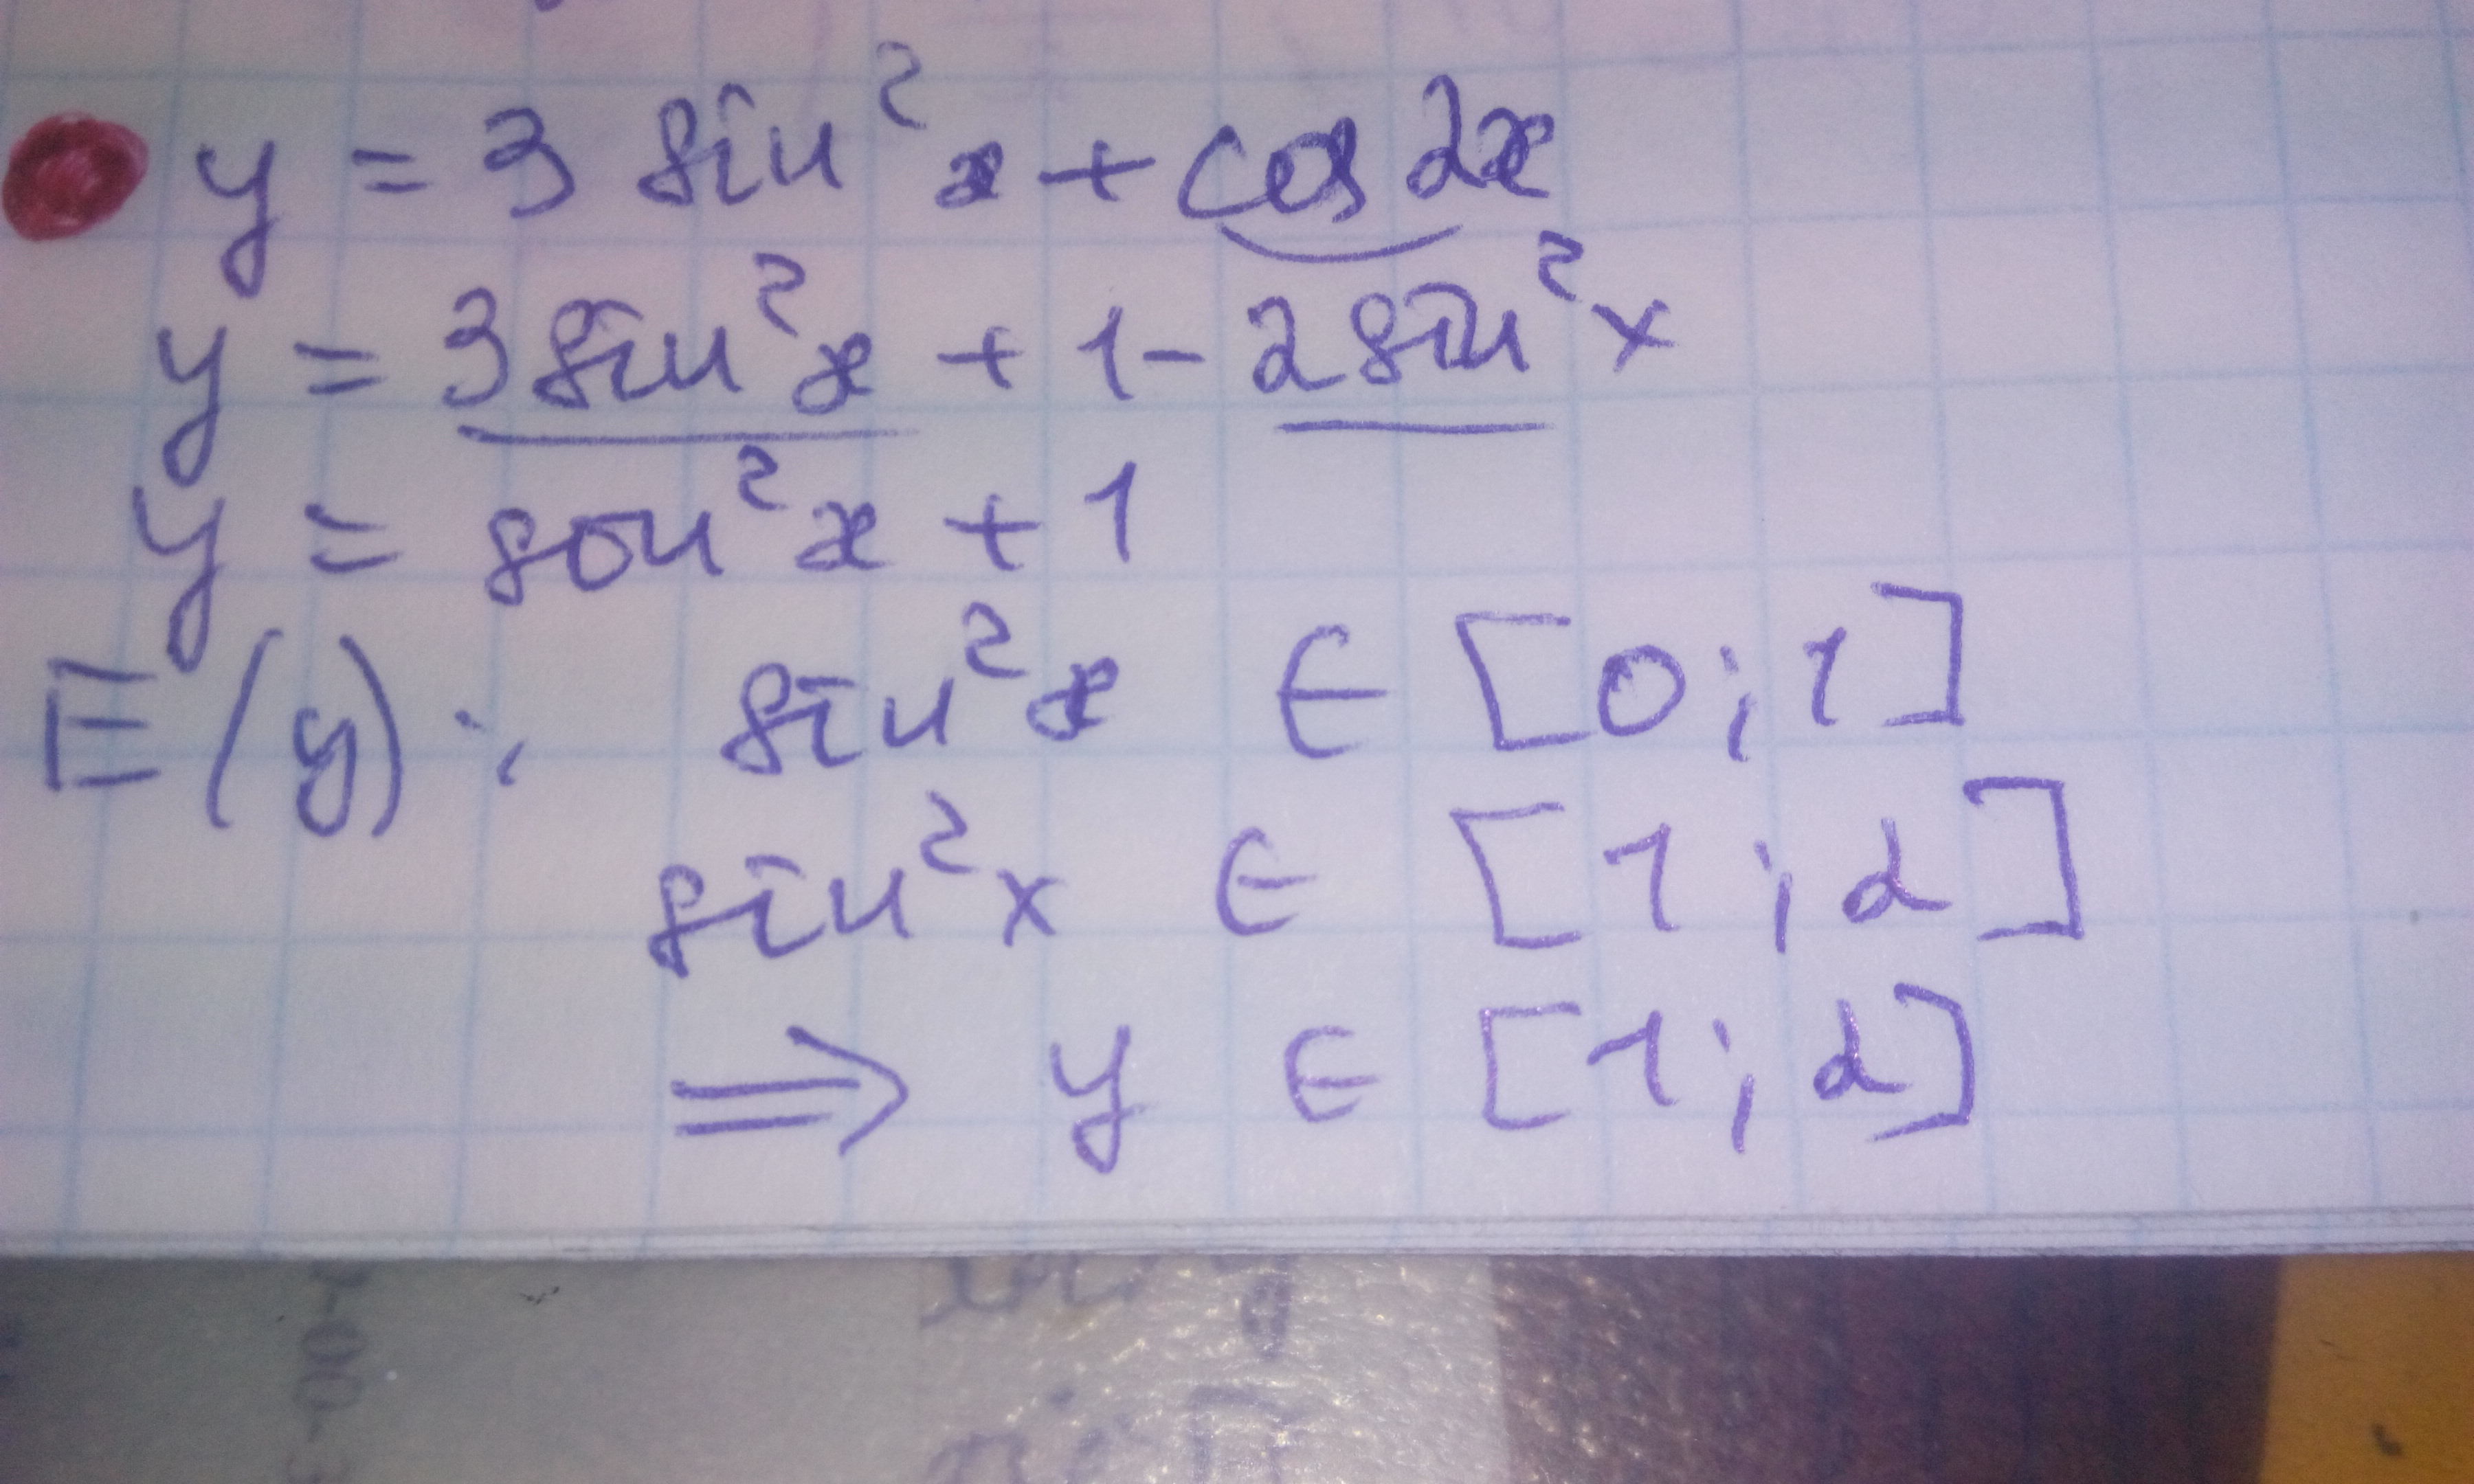 y = 3 sin²x + cos 2x
y = 3 sin²x + 1 - 2 sin²x
y = sin²x + 1
E(y): sin²x ∈ [0; 1]
sin²x ∈ [1; 2]
⇒ y ∈ [1; 2]